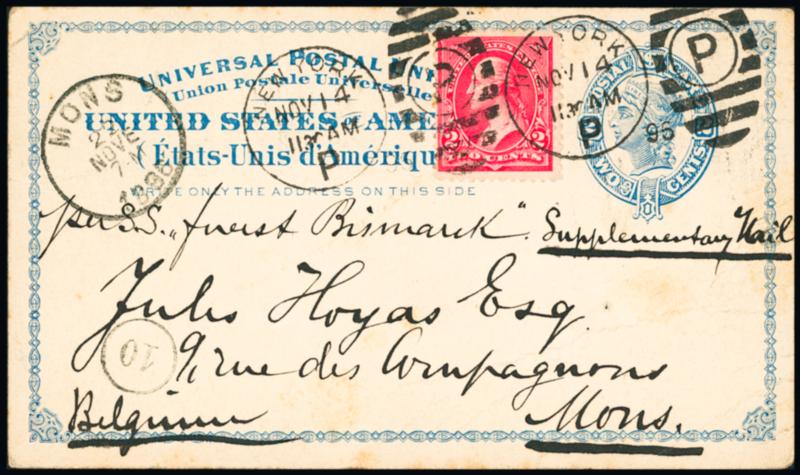 UNIVERSAL POSTAL
Union Postale Universelle
UNITED STATES OF AME
(États-Unis d'Amérique
WRITE ONLY THE ADDRESS ON THIS SIDE
NEW YORK
NOV 14
1130AM
P
2 2
CENTS
NEW YORK
NOV 14
1130AM
P
95
P
TWO CENTS
MONS
NOVE
10
per S.S. „Fuerst Bismarck". Supplementary Mail
Jules Hoyas Esq.
9, rue des Compagnons
Belgium Mons.